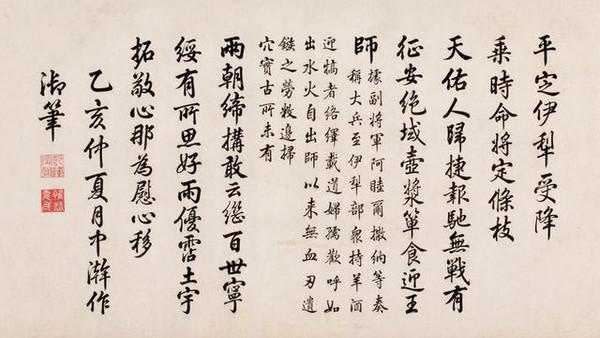 平定伊犁受降
乘時命將定條枝
天佑人歸捷報馳無戰有
征安絕域壺漿簞食迎王
師據副將軍阿睦爾撒納等奏
稱大兵至伊犁部衆持羊酒
迎犒者絡繹載道婦孺歡呼如
出水火自出師以來無血刃遺
鏃之勞敉邊掃
穴實古所未有
兩朝締搆敢云繼百世寧
綏有所思好雨優霑土宇
拓敬心那為慰心移
乙亥仲夏月中澣作
御筆